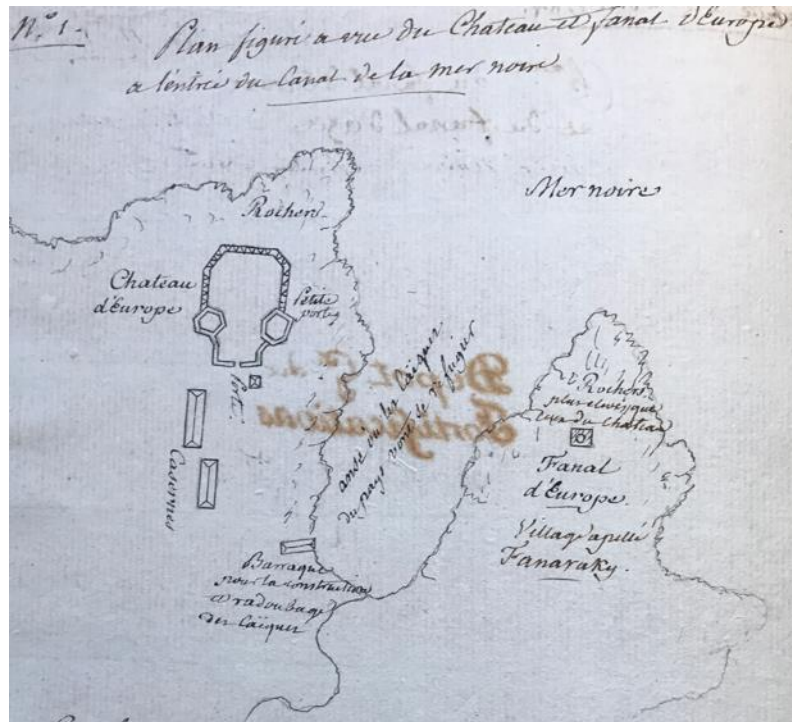 N.º 1.
Plan figuré a vue du Chateau et fanal d'Europe
a l'entrée du Canal de la mer noire
Mer noire
Rochers
Chateau
d'Europe
Petite
porte
Porte
Casernes
anse où les Caïques
du pays vont se refugier
Rochers
plus elevés que
ceux du Chateau
Fanal
d'Europe.
Village apellé
Fanaraky.
Barraque
pour la construction
et radoubage
des Caïques
Dépot g.al des
Fortifications